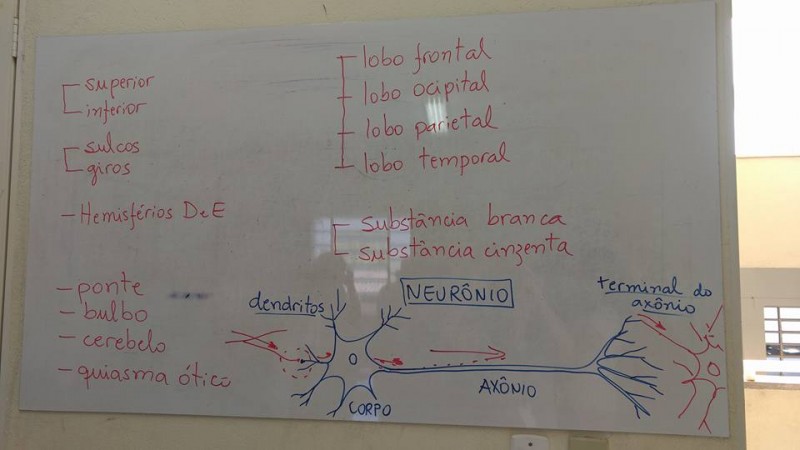 superior
inferior
sulcos
giros
- Hemisférios D e E
- ponte
- bulbo
- cerebelo
- quiasma ótico
lobo frontal
lobo ocipital
lobo parietal
lobo temporal
substância branca
substância cinzenta
NEURÔNIO
dendritos
CORPO
AXÔNIO
terminal do
axônio